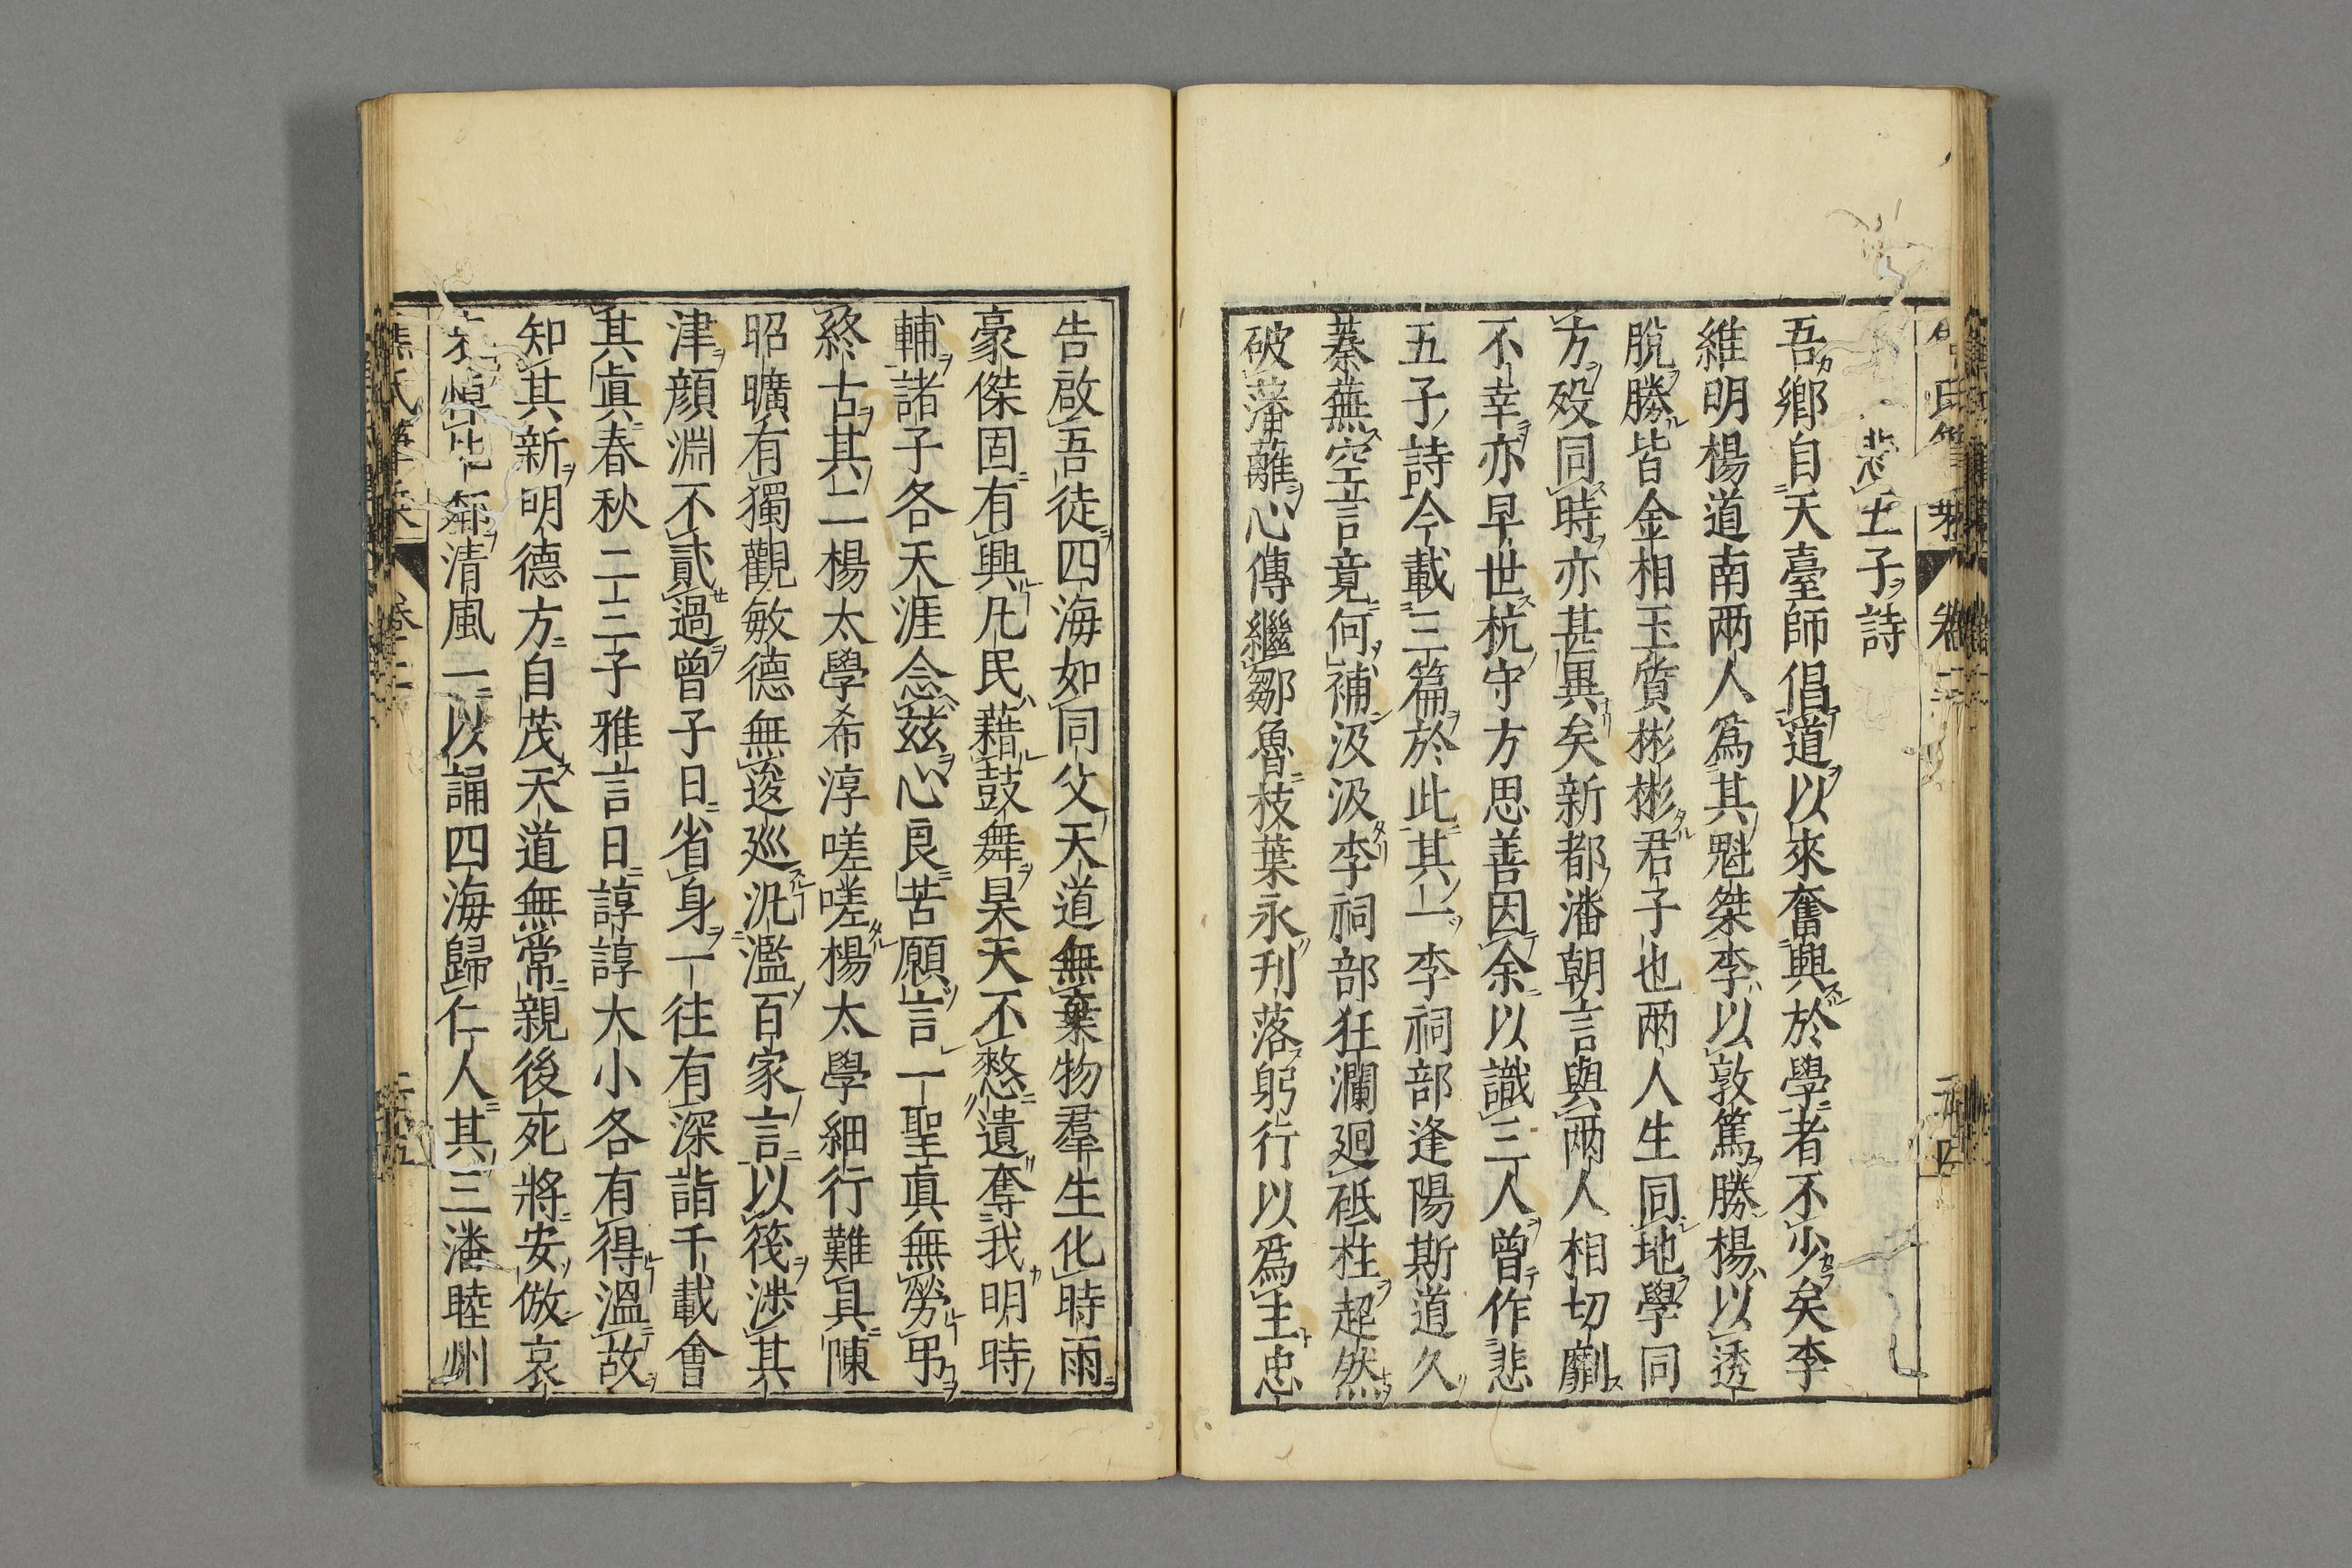 悲五子詩
吾鄉自天臺師倡道以來奮興於學者不少矣李
維明楊道南兩人爲其魁桀李以敦篤勝楊以透
脫勝皆金相玉質彬彬君子也兩人生同地學同
方歿同時亦甚異矣新都潘朝言與兩人相切劘
不幸亦早世杭守方思善因余以識三人曾作悲
五子詩今載三篇於此其一李祠部逢陽斯道久
蓁蕪空言竟何補汲汲李祠部狂瀾廻砥柱超然
破藩蘺心傳繼鄒魯枝葉永刋落躬行以爲主忠
告啟吾徒四海如同父天道無棄物羣生化時雨
豪傑固有興凡民藉鼓舞昊天不憖遺奪我明時
輔諸子各天涯念茲心良苦願言一聖眞無勞弔
終古其二楊太學希淳嗟嗟楊太學細行難具陳
昭曠有獨觀敏德無逡巡汎濫百家言以筏涉其
津顏淵不貳過曾子日省身一往有深詣千載會
其眞春秋二三子雅言日諄諄大小各有得溫故
知其新明德方自茂天道無常親後死將安倣哀
哀悼此鄰清風一以誦四海歸仁人其三潘睦州
焦氏筆乘
卷二
二十五